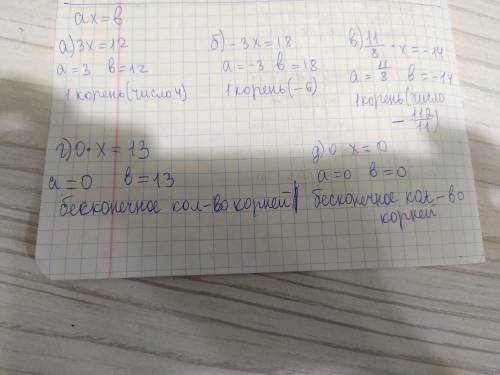 ax = в
а) 3x = 12
a = 3 в = 12
1 корень (число 4)
б) -3x = 18
a = -3 в = 18
1 корень (-6)
в) 11/8 · x = -14
a = 11/8 в = -14
1 корень (число
- 112/11)
г) 0 · x = 13
a = 0 в = 13
бесконечное кол-во корней
д) 0 x = 0
a = 0 в = 0
бесконечное кол-во
корней